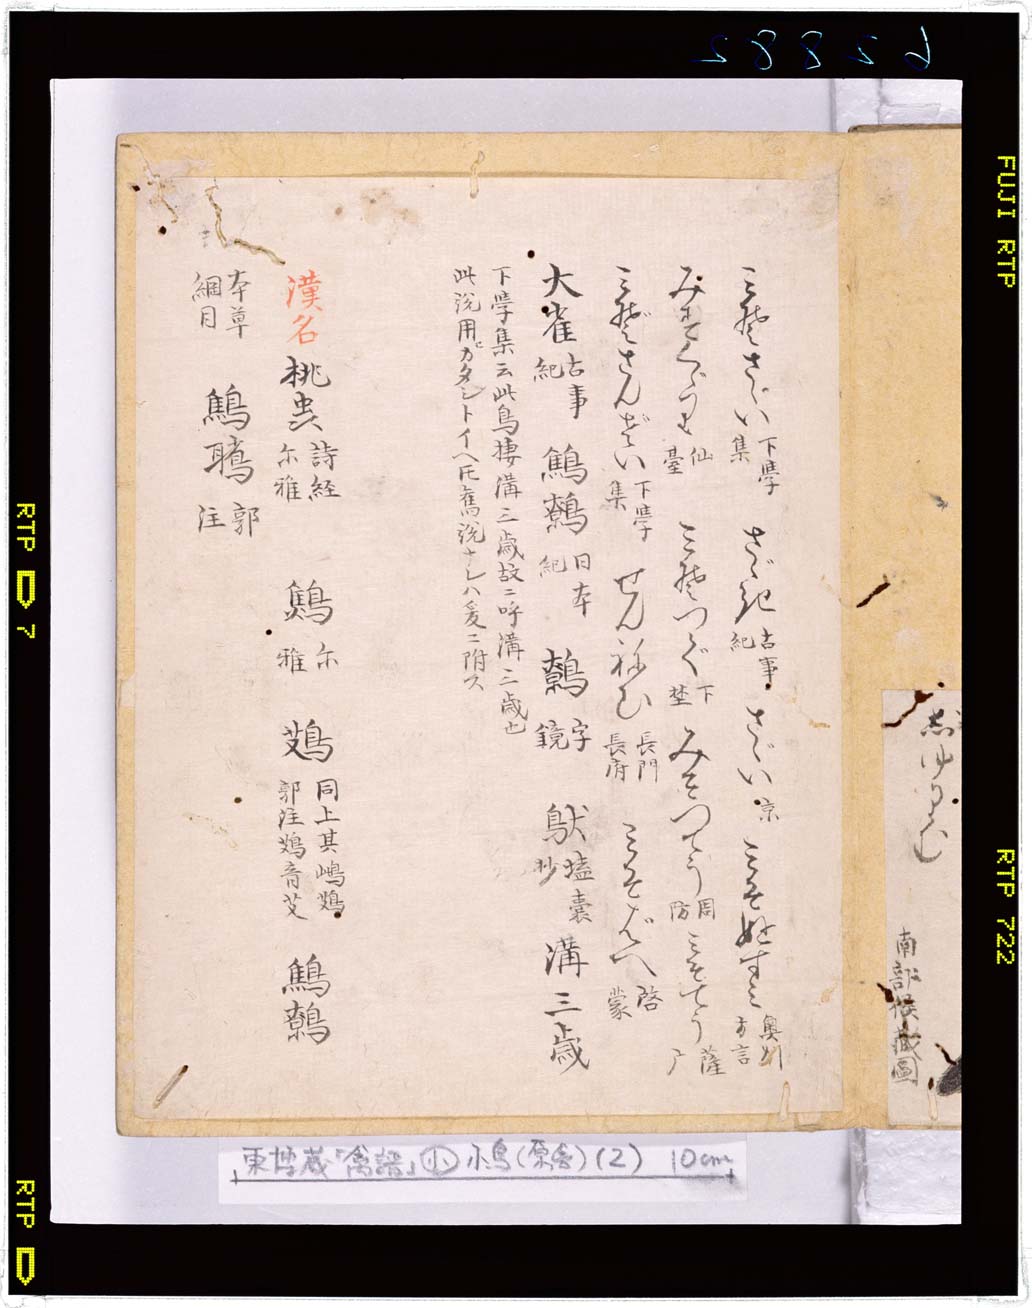 62882
FUJI RTP
RTP 722
RTP 7
RTP
みそさゞい 下學集 さゞき 古事紀 さゞい 京 みそぬすミ 奥州方言
みそくゞり 仙臺 ミそつぐ 下埜 みそつてう 周防 ミそてう 薩广
ミぞさんざい 下學集 せんねむ 長門長府 ミそばへ 啓蒙
大雀 古事紀 鷦鷯 日本紀 鷯 字鏡 鴥 壒囊抄 溝三歳
下學集云此鳥棲溝三歳故ニ呼溝三歳也
此説用ヒガタシトイヘ𪜈舊説ナレハ爰ニ附ス
漢名 桃虫 詩経尓雅 鷦 尓雅 鴱 同上其鳭鴱郭注鴱音艾 鷦鷯
本草綱目 鷦𪆂 郭注
南部侯蔵圖
東博蔵「禽譜」小 小鳥(原色)(2) 10cm